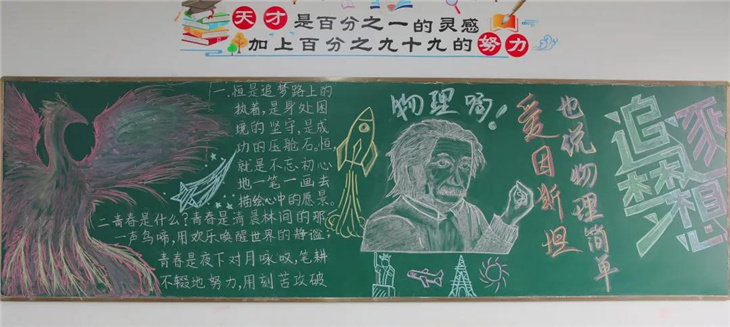 天才是百分之一的灵感
加上百分之九十九的努力
一.恒是追梦路上的
执着,是身处困
境的坚守,是成
功的压舱石。恒
就是不忘初心
地一笔一画去
描绘心中的愿景。
二.青春是什么?青春是清晨林间的那
一声鸟啼,用欢乐唤醒世界的静谧;
青春是夜下对月咏叹,笔耕
不辍地努力,用刻苦攻破
物理嘛!
爱因斯坦
也说物理简单
追梦
梦想